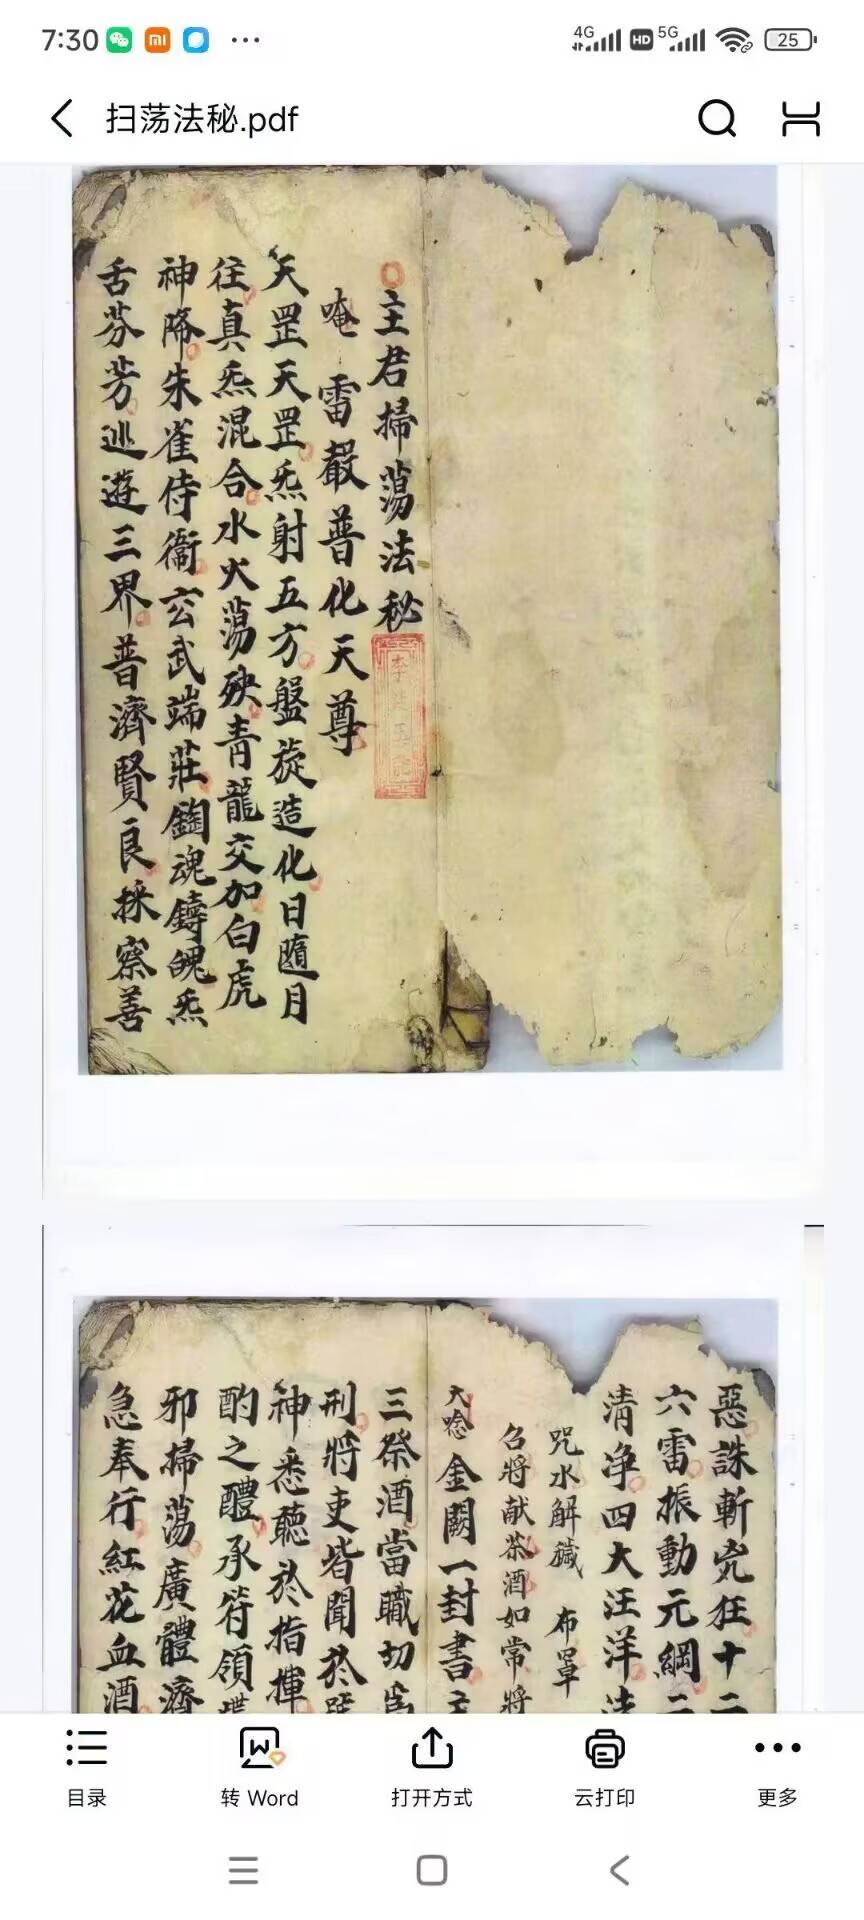 7:30
4G
HD
5G
25
扫荡法秘.pdf
主君掃蕩法秘
唵 雷聲普化天尊
天罡天罡炁射五方盤旋造化日隨月
往真炁混合水火蕩殃青龍交加白虎
神降朱雀侍衞玄武端莊鎓魂鑄魄炁
舌芬芳巡遊三界普濟賢良採察善
惡誅斬兇狂十二
六雷振動元綱二
清净四大汪洋法
咒水解穢 布罩
召將献茶酒如常將
大唸 金闕一封書
三祭酒當職切爲
刑將吏皆聞於
神悉聽於指揮
酌之醴承符領
邪掃蕩廣體濟
急奉行紅花血酒
目录
转 Word
打开方式
云打印
更多